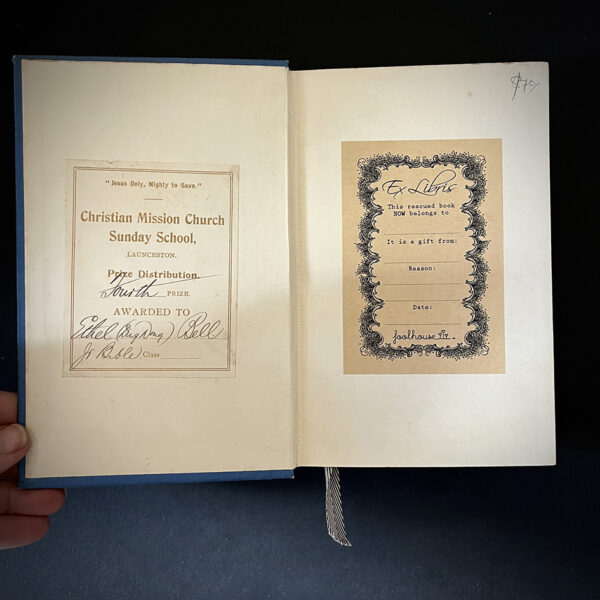 "Jesus Only, Mighty to Save."
Christian Mission Church
Sunday School,
LAUNCESTON.
Prize Distribution.
Fourth PRIZE.
AWARDED TO
Ethel (Ding Dong) Bell
Jr Bible) Class
Ex Libris
This rescued book
NOW belongs to
It is a gift from:
Reason:
Date:
foolhouse